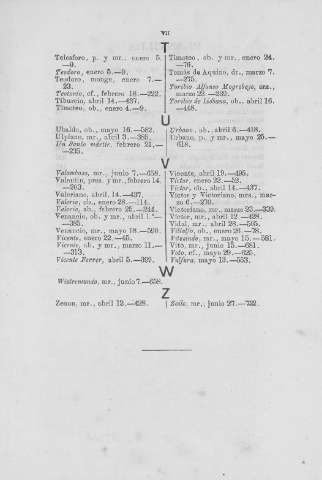 VII
T
Telesforo, p. y mr., enero 5.
—9.
Teodoro, enero 5.—9.
Teodoro, monge, enero 7.—
23.
Teotonio, cf., febrero 18.—222.
Tiburcio, abril 14.—437.
Timoteo, ob., enero 4.—9.
Timoteo, ob. y mr., enero 24.
—76.
Tomás de Aquino, dr., marzo 7.
—275.
Toribio Alfonso Mogrobejo, arz.,
marzo 23.—339.
Toribio de Liébana, ob., abril 16.
—448.
U
Ubaldo, ob., mayo 16.—582.
Ulpiano, mr., abril 3.—385.
Un Santo mártir, febrero 21.—
—235.
Urbano, ob., abril 6.—418.
Urbano, p. y mr., mayo 25.—
618.
V
Valambosa, mr., junio 7.—658.
Valentin, pres. y mr., febrero 14.
—203.
Valeriano, abril 14.—437.
Valerio, ob., enero 28.—114.
Valerio, ab., febrero 25.—244.
Venancio, ob. y mr., abril 1.º—
—385.
Venancio, mr., mayo 18.—590.
Vicente, enero 22.—45.
Vicente, ob. y mr., marzo 11.—
—313.
Vicente Ferrer, abril 5.—399.
Vicente, abril 19.—495.
Víctor, enero 22.—52.
Víctor, ob., abril 14.—437.
Victor y Victoriano, mrs., mar-
zo 6.—270.
Victoriano, mr., marzo 23.—339.
Victor, mr., abril 12.—428.
Vidal, mr., abril 28.—505.
Vitaliano, ob., enero 26.—78.
Vitesindo, mr., mayo 15.—581.
Vito, mr., junio 15.—681.
Voto, cf., mayo 29.—625.
Vulfura, mayo 13.—553.
W
Wistremundo, mr., junio 7.—658.
Z
Zenon, mr., abril 12.—428.
Zoilo, mr., junio 27.—732.